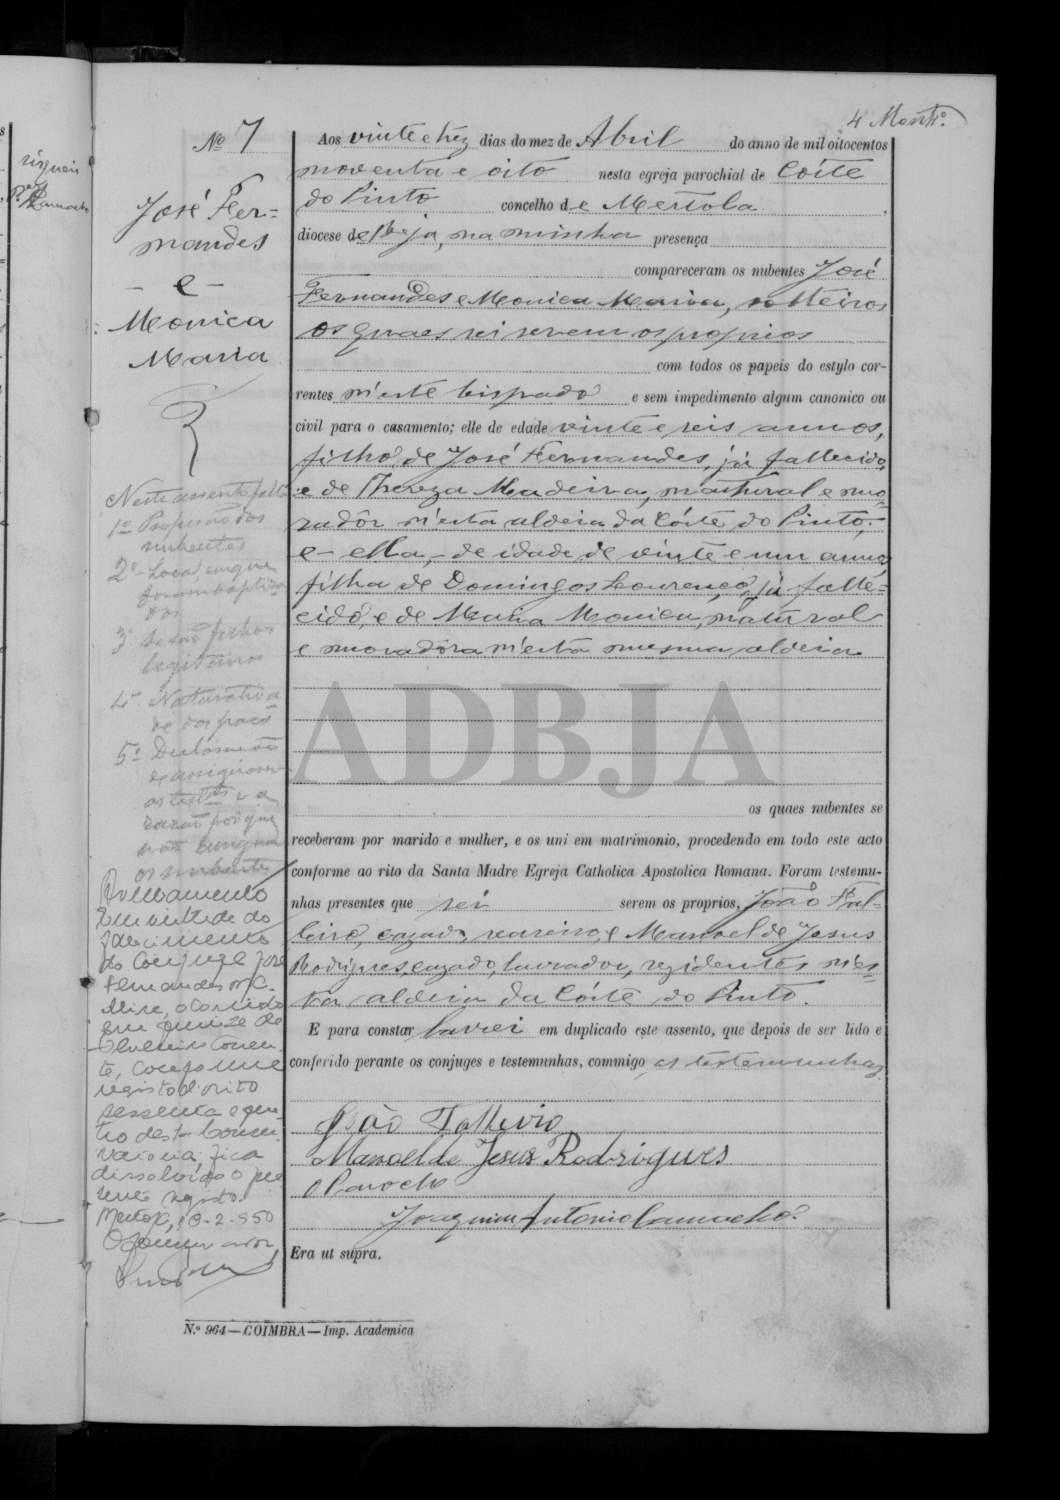 4 Montro.
Nº 7
José Fer-
nandes
- e -
Monica
Maria
Aos vinte e trez dias do mez de Abril do anno de mil oitocentos
noventa e oito nesta egreja parochial de Côrte
do Pinto concelho de Mertola
diocese de Beja, na minha presença
compareceram os nubentes José
Fernandes e Monica Maria, solteiros
os quaes sei serem os proprios
com todos os papeis do estylo cor-
rentes n'este bispado e sem impedimento algum canonico ou
civil para o casamento; elle de edade vinte e seis annos,
filho de José Fernandes, já fallecido,
e de Thereza Madeira, natural e mo-
rador n'esta aldeia da Côrte do Pinto,
e - ella, - de idade de vinte e um annos
filha de Domingos Lourenço, já falle-
cido, e de Maria Monica, natural
e moradôra n'esta mesma aldeia
os quaes nubentes se
receberam por marido e mulher, e os uni em matrimonio, procedendo em todo este acto
conforme ao rito da Santa Madre Egreja Catholica Apostolica Romana. Foram testemu-
nhas presentes que sei serem os proprios, João
cazado, seareiro, e Manoel de Jesus
Rodrigues, cazado, lavrador, rezidentes n'es-
ta aldeia da Côrte do Pinto.
E para constar lavrei em duplicado este assento, que depois de ser lido e
conferido perante os conjuges e testemunhas, commigo as testemunhas
João
Manoel de Jesus Rodrigues
O Parocho
Joaquim Antonio Camacho
Era ut supra.
Neste assento falta
1º Profissão dos
nubentes
2º - Local em que
foram baptiza
dos
3º Se são filhos
legitimos
4º Naturalida
de dos paes
5º
e assignarem
as testas e a
razão porque
não assignam
os nubentes
Averbamento
Em virtude do
falecimento
do conjuge José
Fernandes
ocorrido
em quinze de
corren-
te, conforme
registo d'obito
sessenta e qua-
tro desta Conser-
vatoria, fica
dissolvido o pre
sente registo.
Mertola, 18-2-950
O Conservador,
ADBJA
N.º 964—COIMBRA—Imp. Academica